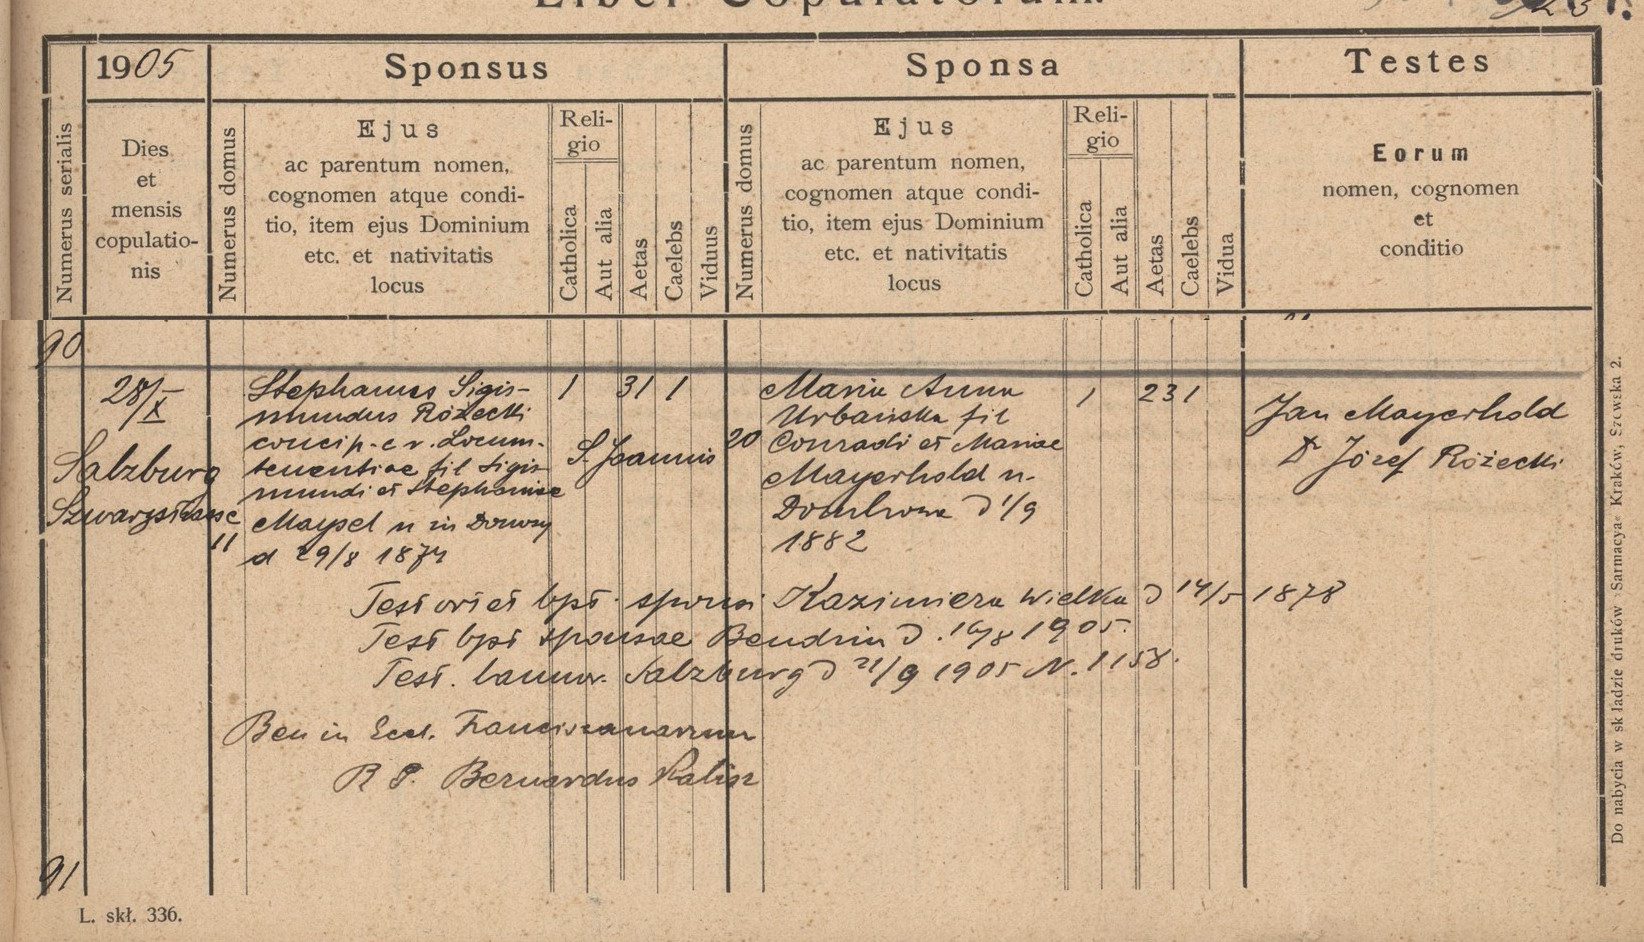 Liber Copulatorum.
1905
Sponsus
Sponsa
Testes
Numerus serialis
Dies
et
mensis
copulatio-
nis
Numerus domus
Ejus
ac parentum nomen,
cognomen atque condi-
tio, item ejus Dominium
etc. et nativitatis
locus
Reli-
gio
Catholica
Aut alia
Aetas
Caelebs
Viduus
Numerus domus
Ejus
ac parentum nomen,
cognomen atque condi-
tio, item ejus Dominium
etc. et nativitatis
locus
Reli-
gio
Catholica
Aut alia
Aetas
Caelebs
Vidua
Eorum
nomen, cognomen
et
conditio
90
28/X
Salzburg
Szwarzstrasse
11
Stephanus Sigis-
mundus Różecki
concip. c r. Locum-
tenentiae fil Sigis-
mundi et Stephaniae
Maysel n in
d 29/8 1874
1 31 1
S. Joannis 20
Maria Anna
Urbańska fil
Conradi et Mariae
Mayerhold n.
Dombrowa d 1/9
1882
1 23 1
Jan Mayerhold
Dr Józef Różecki
Test ort et bpt. sponsi Kazimiera Wielka d 14/5 1878
Test bpt sponsae Bendzin d. 1905.
Test. bannor. Salzburg d 21/9 1905 N. 1158.
Ben in Eccl. Franciscanorum
R P. Bernardus
91
L. skł. 336.
Do nabycia w składzie druków „Sarmacya“ Kraków, Szewska 2.